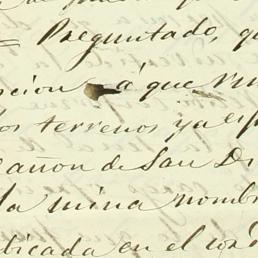 = Preguntado, q
cion á que
los terrenos ya es
Cañon de San Di
la mina nombr
bicada en el